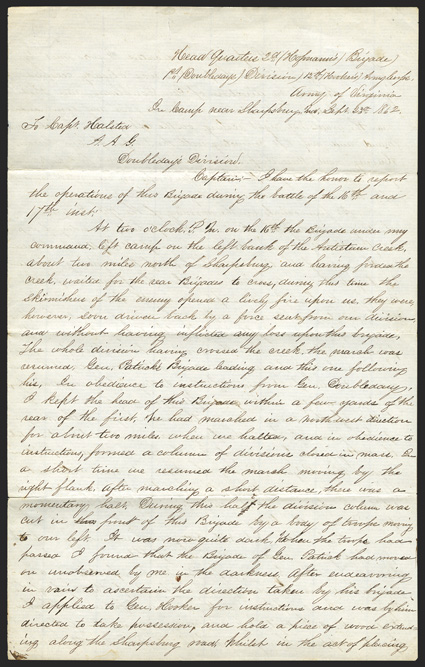 Head Quarters 2d (Hofmann's) Brigade
1st (Doubleday's) Division 12th (Hooker's) Army Corps
Army of Virginia
In Camp near Sharpsburg Md. Sept. 23d 1862.
To Capt. Halsted
A. A. G.
Doubleday's Division.
Captain:— I have the honor to report
the operations of this Brigade during the battle of the 16th and
17th inst.
At two o'clock, P. M. on the 16th the Brigade under my
command left camp on the left bank of the Antietam Creek,
about two miles north of Sharpsburg, and having forded the
creek, waited for the rear Brigades to cross, during this time the
skirmishers of the enemy opened a lively fire upon us. they were
however, soon driven back by a force sent from our division
and without having inflicted any loss upon this brigade.
The whole division having crossed the creek, the march was
resumed, Gen. Patrick's Brigade leading and this one following
his, In obedience to instructions from Gen. Doubleday,
I kept the head of this Brigade within a few yards of the
rear of the first. We had marched in a northwest direction
for about two miles when we halted, and in obedience to
instructions, formed a column of divisions closed in mass. In
a short time we resumed the march moving by the
right flank. After marching a short distance, there was a
momentary halt. During this halt the division column was
cut in front of this Brigade by a body of troops moving
to our left. It was now quite dark, When the troops had
passed I found that the Brigade of Gen. Patrick had moved
on unobserved by me in the darkness. After endeavoring
in vain to ascertain the direction taken by his brigade
I applied to Gen. Hooker for instructions and was by him
directed to take possession, and hold a piece of wood extend
ing along the Sharpsburg road, Whilst in the act of placing